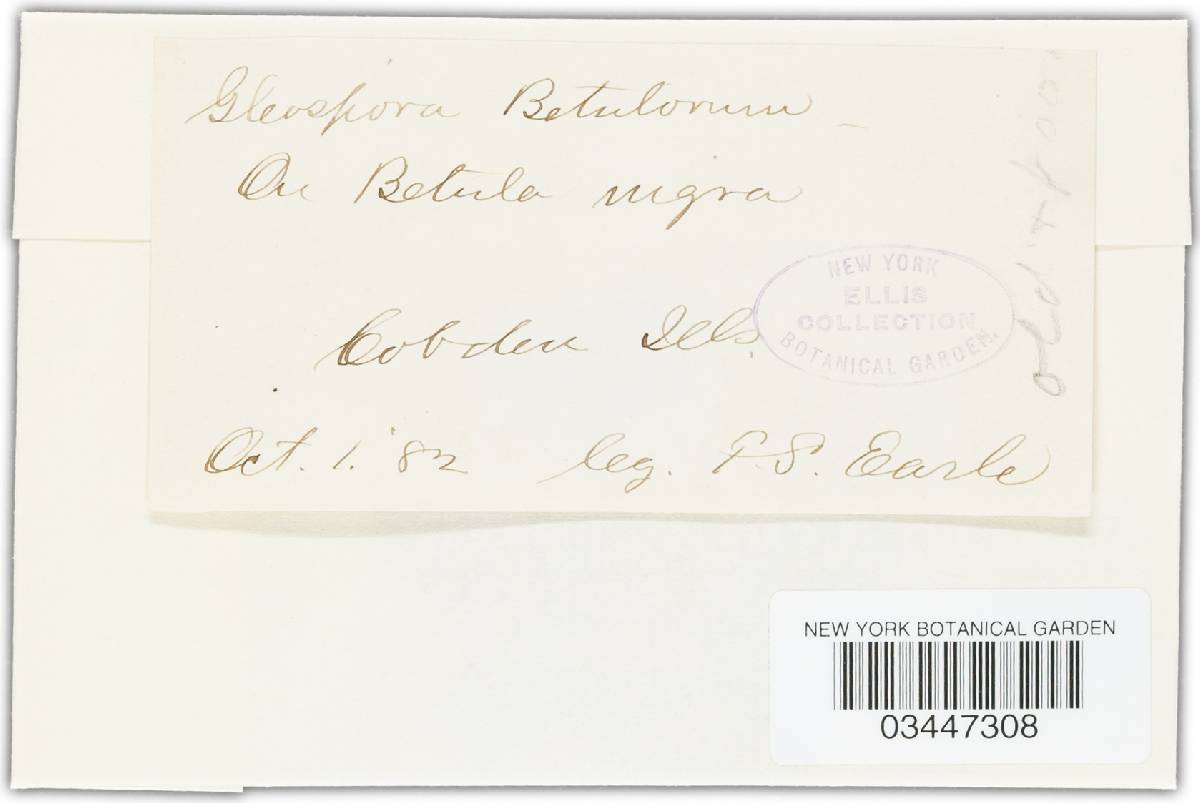 Gleospora Betulorum –
On Betula nigra
Cobden Ills.
Oct. 1. '82 leg. F.S. Earle
NEW YORK
ELLIS
COLLECTION
BOTANICAL GARDEN.
old
NEW YORK BOTANICAL GARDEN
03447308